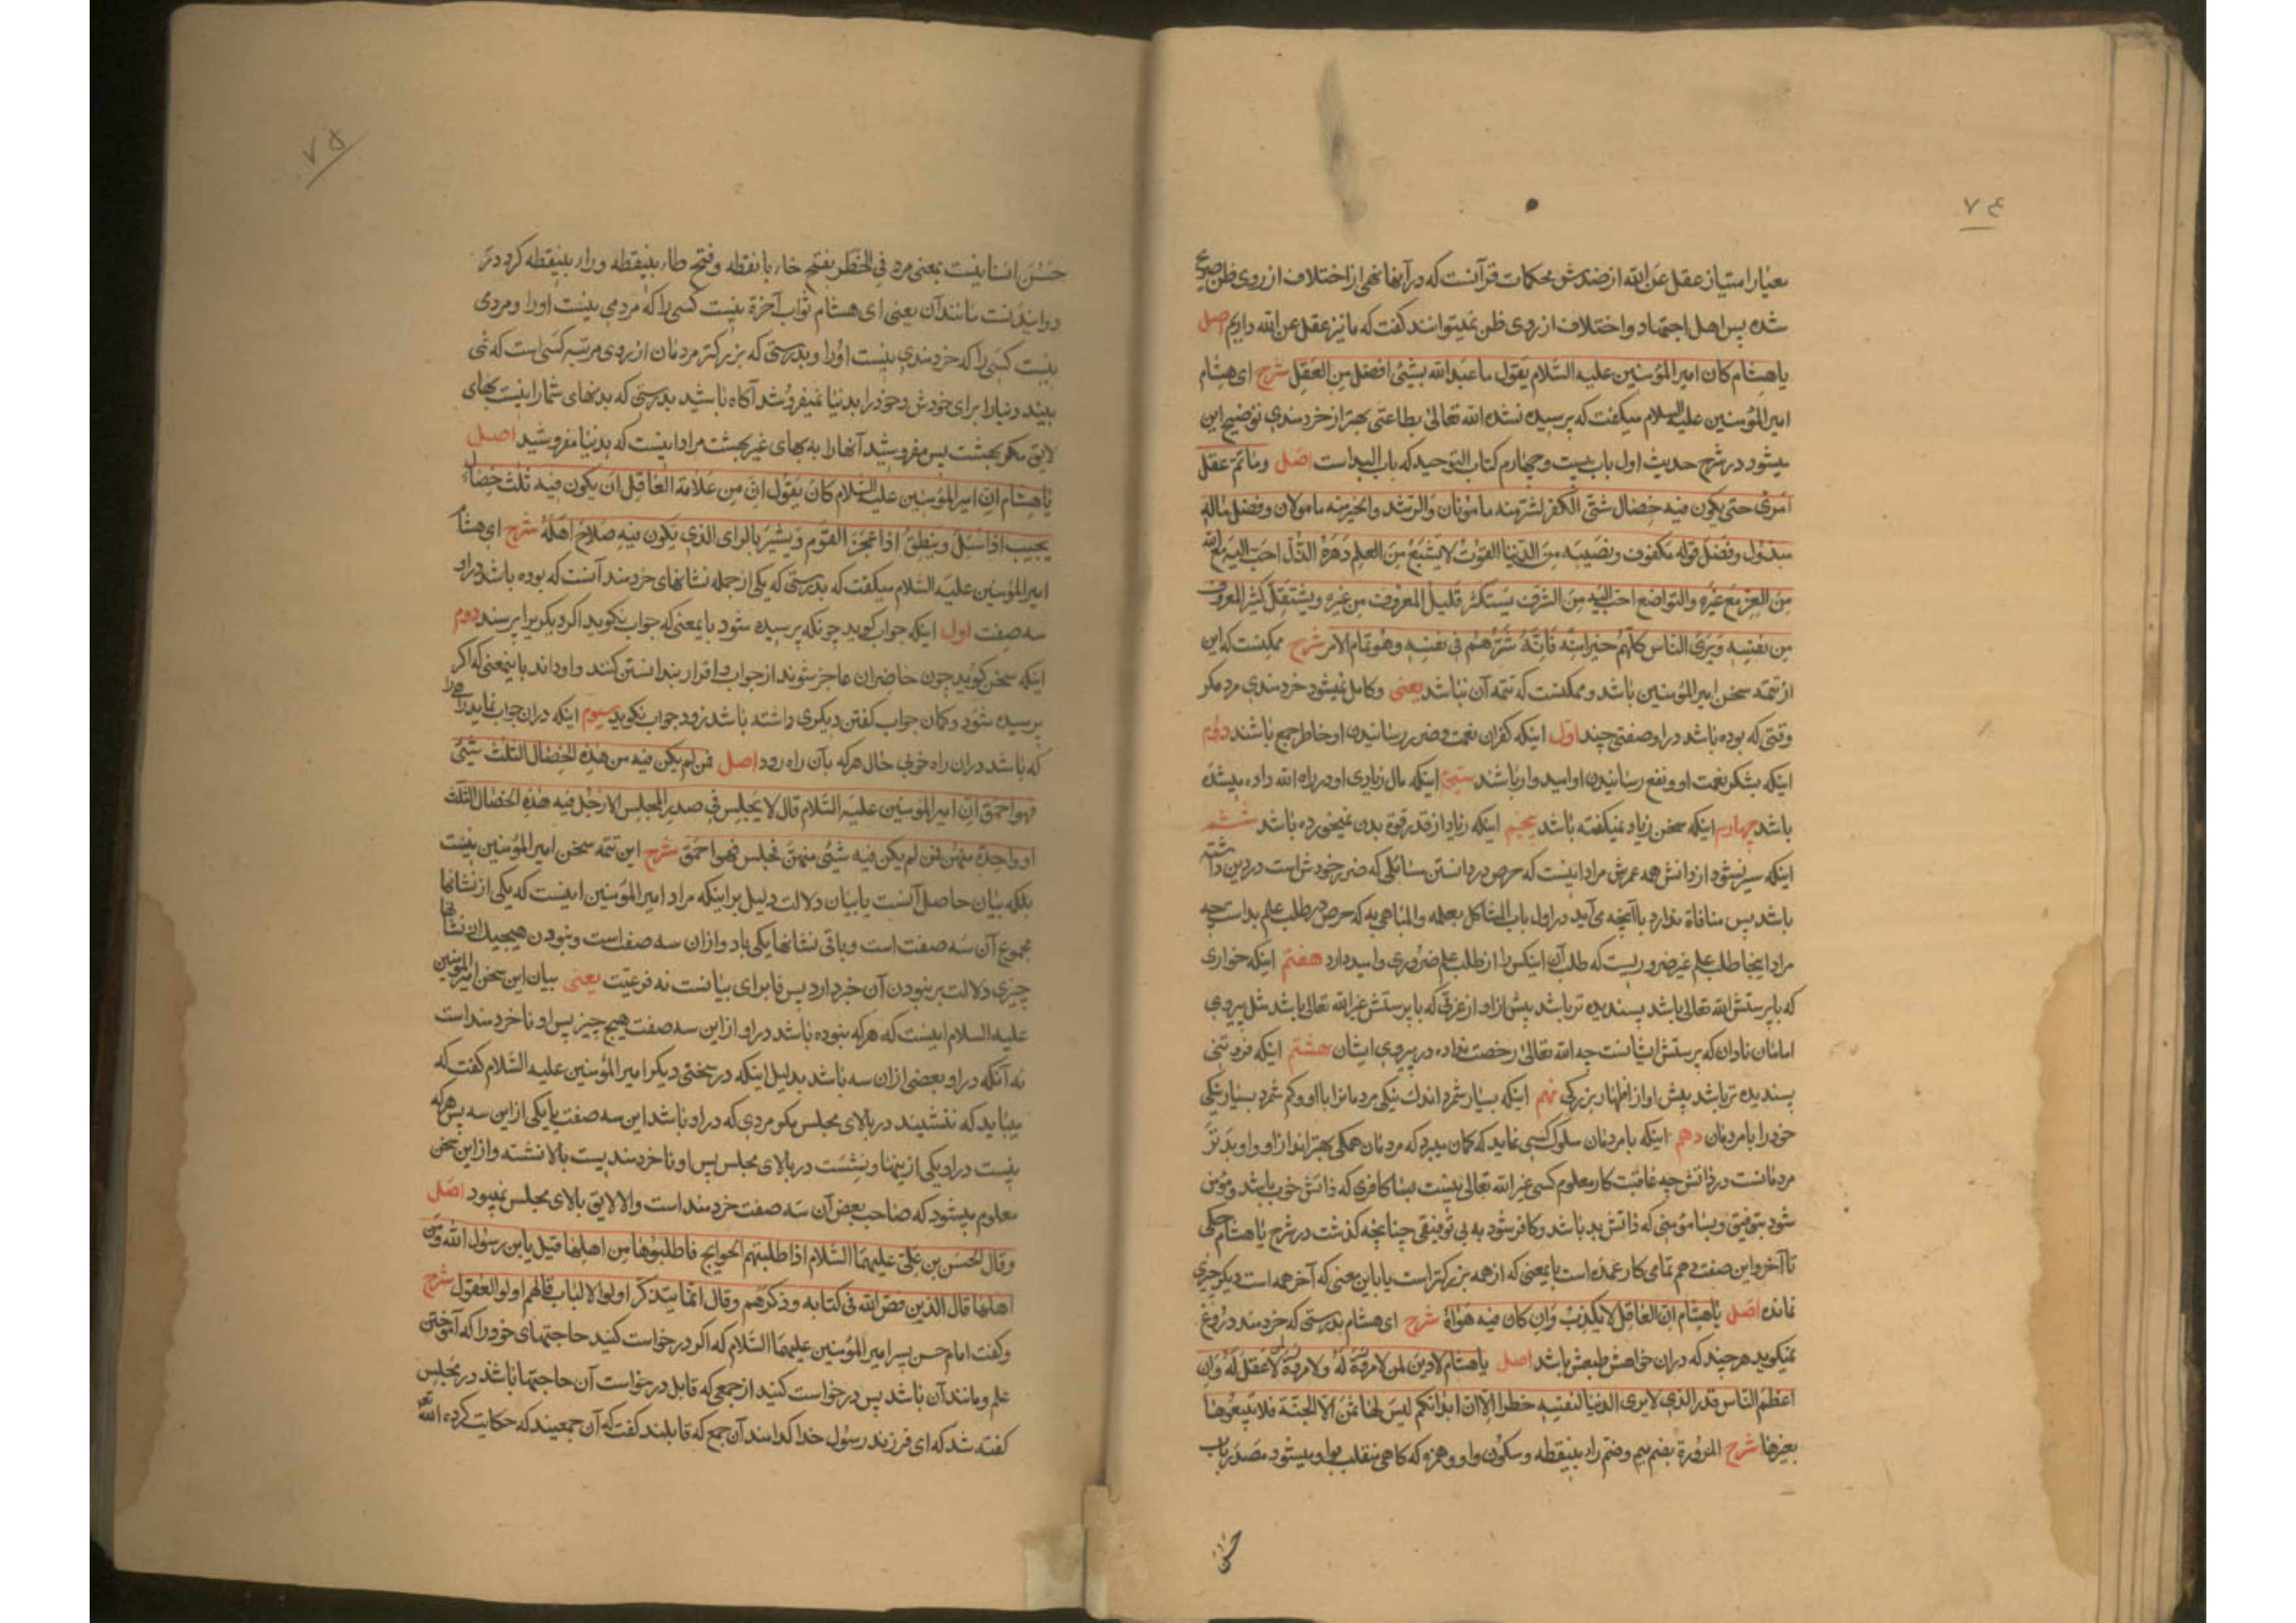 ۷۴
معیار امتیاز عقل عن الله از ضدش محکمات قرآنست که در آنها نهی از اختلاف از روی ظن صریح
شده پس اهل اجتهاد و اختلاف از روی ظن نمیتوانند گفت که ما نیز عقل عن الله داریم اصل
یا هشام کان امیر المؤمنین علیه السّلام یقول ما عبد الله بشئ افضل من العقل شرح ای هشام
امیر المؤمنین علیه السلام میگفت که پرسیده نشده الله تعالی بطاعتی بهتر از خردمندی توضیح این
میشود در شرح حدیث اول باب بیست و چهارم کتاب التوحید که باب البداست اصل وما تمّ عقل
امرئ حتی یکون فیه خصال شتّی الکفر الشر منه مامونان والرّشد والخیر منه مامولان وفضل ماله
مبذول وفضل قوله مکفوف ونصیبه من الدّنیا القوت لا یشبع من العلم دهره الذّل احبّ الیه مع الله
من العز مع غیره والتواضع احبّ الیه من الشّرف یستکثر قلیل المعروف من غیره ویستقلّ کثیر المعروف
من نفسه ویری الناس کلّهم خیرا منه وانّه شرّهم فی نفسه وهو تمام الامر شرح ممکنست که این
از تتمّه سخن امیر المؤمنین باشد و ممکنست که تتمه آن نباشد یعنی و کامل نمیشود خردمندی مرد مگر
وقتی که بوده باشد در او صفتی چند اول اینکه کفران نعمت و ضرر رسانیدن او خاطر جمع باشند دوم
اینکه بشکر نعمت او و نفع رسانیدن او امیدوار باشند سیّم اینکه مال زیادی او در راه الله داده میشده
باشد چهارم اینکه سخن زیاد نمیگفته باشد پنجم اینکه زیاد از قدر قوة بدن نمیخورده باشد ششم
اینکه سیر نشود از دانش همه عمرش مراد اینست که حرص در دانستن مسائلی که ضرر خودش است در دین داشته
باشد پس منافاة ندارد با آنچه می آید در اول باب المستاکل بعلمه والمباهی به که حرص در طلب علم بد است چه
مراد اینجا طلب علم غیر ضروریست که طلب آن اینکس را از طلب علم ضروری وامیدارد هفتم اینکه خواری
که با پرستش الله تعالی باشد پسندیده تر باشد پیش از او از عزتی که با پرستش غیر الله تعالی باشد مثل پیروی
امامان نادان که پرستش ایشانست چه الله تعالی رخصت نداده در پیروی ایشان هشتم اینکه فروتنی
پسندیده تر باشد پیش او از اظهار بزرگی نهم اینکه بسیار شمرد اندک نیکی مردمانرا با او و کم شمرد بسیار نیکی
خود را با مردمان دهم اینکه با مردمان سلوک کسی نماید که گمان میبرد که مردمان همگی بهترانند از او و او بدتر
مردمانست در ذاتش چه عاقبت کار معلوم کسی غیر الله تعالی نیست بسا کافری که ذاتش خوب باشد و مؤمن
شود بتوفیق و بسا مؤمنی که ذاتش بد باشد و کافر شود به بی توفیقی چنانچه گذشت در شرح یا هشام حکی
تا آخر و این صفت دهم تمامی کار عمده است بایمعنی که از همه بزرگتر است یا باین معنی که آخر همه است دیگر چیزی
نمانده اصل یا هشام انّ العاقل لا یکذب وان کان فیه هواه شرح ای هشام بدرستی که خردمند دروغ
نمیگوید هر چند که در آن خواهش طبعش باشد اصل یا هشام لا دین لمن لا مروّة له ولا مروّة لمن لا عقل له وانّ
اعظم النّاس قدرا الذی لا یری الدنیا لنفسه خطرا الا انّ ابدانکم لیس لها ثمن الّا الجنّة فلا تبیعوها
بغیرها شرح المروءة بضم میم وضمّ راء بینقطه و سکون واو و همزه که گاهی منقلب بواو میشود مصدر باب
حسن
۷۵
حسن انسانیت بمعنی مردی الخطر بفتح خاء با نقطه و فتح طاء بینقطه و راء بینقطه گرو در
دوانیدنست مانند آن یعنی ای هشام ثواب آخرة نیست کسی را که مردمی نیست او را و مردمی
نیست کسی را که خردمندی نیست او را و بدرستی که بزرگتر مردمان از روی مرتبه کسی است که نمی
بیند دنیا را برای خودش و خود را بدنیا نمیفروشد آگاه باشید بدرستی که بدنهای شما را نیست بهای
لایق مگر بهشت پس مفروشید آنها را به بهای غیر بهشت مراد اینست که بدنیا مفروشید اصل
یا هشام انّ امیر المؤمنین علیه السّلام کان یقول انّ من علامة العاقل ان یکون فیه ثلث خصال
یجیب اذا سئل وینطق اذا عجز القوم ویشیر بالرای الذی یکون فیه صلاح اهله شرح ای هشام
امیر المؤمنین علیه السّلام میگفت که بدرستی که یکی از جمله نشانهای خردمند آنست که بوده باشد در او
سه صفت اول اینکه جواب گوید چونکه پرسیده شود بایمعنی که جواب نگوید اگر دیگریرا پرسند دوم
اینکه سخن گوید چون حاضران عاجز شوند از جواب و اقرار بندانستن کنند و او داند باینمعنی که اگر
پرسیده شود و گمان جواب گفتن دیگری داشته باشد زود جواب نگوید سیوم اینکه در آن جواب نماید راهی را
که باشد در آن راه خوبی حال هر که بآن راه رود اصل فمن لم یکن فیه من هذه الخصال الثلث شئ
فهو احمق انّ امیر المؤمنین علیه السّلام قال لا یجلس فی صدر المجلس الا رجل فیه هذه الخصال الثلث
او واحدة منهن فمن لم یکن فیه شئ منهن فجلس فهو احمق شرح این تتمّه سخن امیر المؤمنین نیست
بلکه بیان حاصل آنست یا بیان دلالت دلیل بر اینکه مراد امیر المؤمنین اینست که یکی از نشانها
مجموع آن سه صفت است و باقی نشانها یکی یا دو از آن سه صفت است و نبودن هیچیک از نشانها
چیزی دلالت بر نبودن آن خبر دارد پس فا برای بیانست نه فرعیّت یعنی بیان این سخن امیر المؤمنین
علیه السلام اینست که هر که نبوده باشد در او از این سه صفت هیچ چیز پس او ناخردمند است
نه آنکه در او بعضی از آن سه باشد بدلیل اینکه در سخنی دیگر امیر المؤمنین علیه السّلام گفت که
میباید که ننشیند در بالای مجلس مگر مردی که در او باشد این سه صفت یا یکی از این سه پس هر که
نیست در او یکی از اینها و نشست در بالای مجلس پس او ناخردمندیست بالا نشسته و از این سخن
معلوم میشود که صاحب بعض آن سه صفت خردمند است والا لایق بالای مجلس نمیبود اصل
وقال الحسن بن علیّ علیهما السّلام اذا طلبتم الحوایج فاطلبوها من اهلها قیل یابن رسول الله ومن
اهلها قال الذین قصّ الله فی کتابه وذکرهم وقال انّما یتذکّر اولوا الالباب قال هم اولوا العقول شرح
وگفت امام حسن پسر امیر المؤمنین علیهما السّلام که اگر درخواست کنید حاجتهای خود را که آموختن
علم و مانند آن باشد پس درخواست کنید از جمعی که قابل درخواست آن حاجتها باشد در مجلس
گفته شد که ای فرزند رسول خدا کدامند آن جمع که قابلند گفت که آن جمعیند که حکایت کرده الله